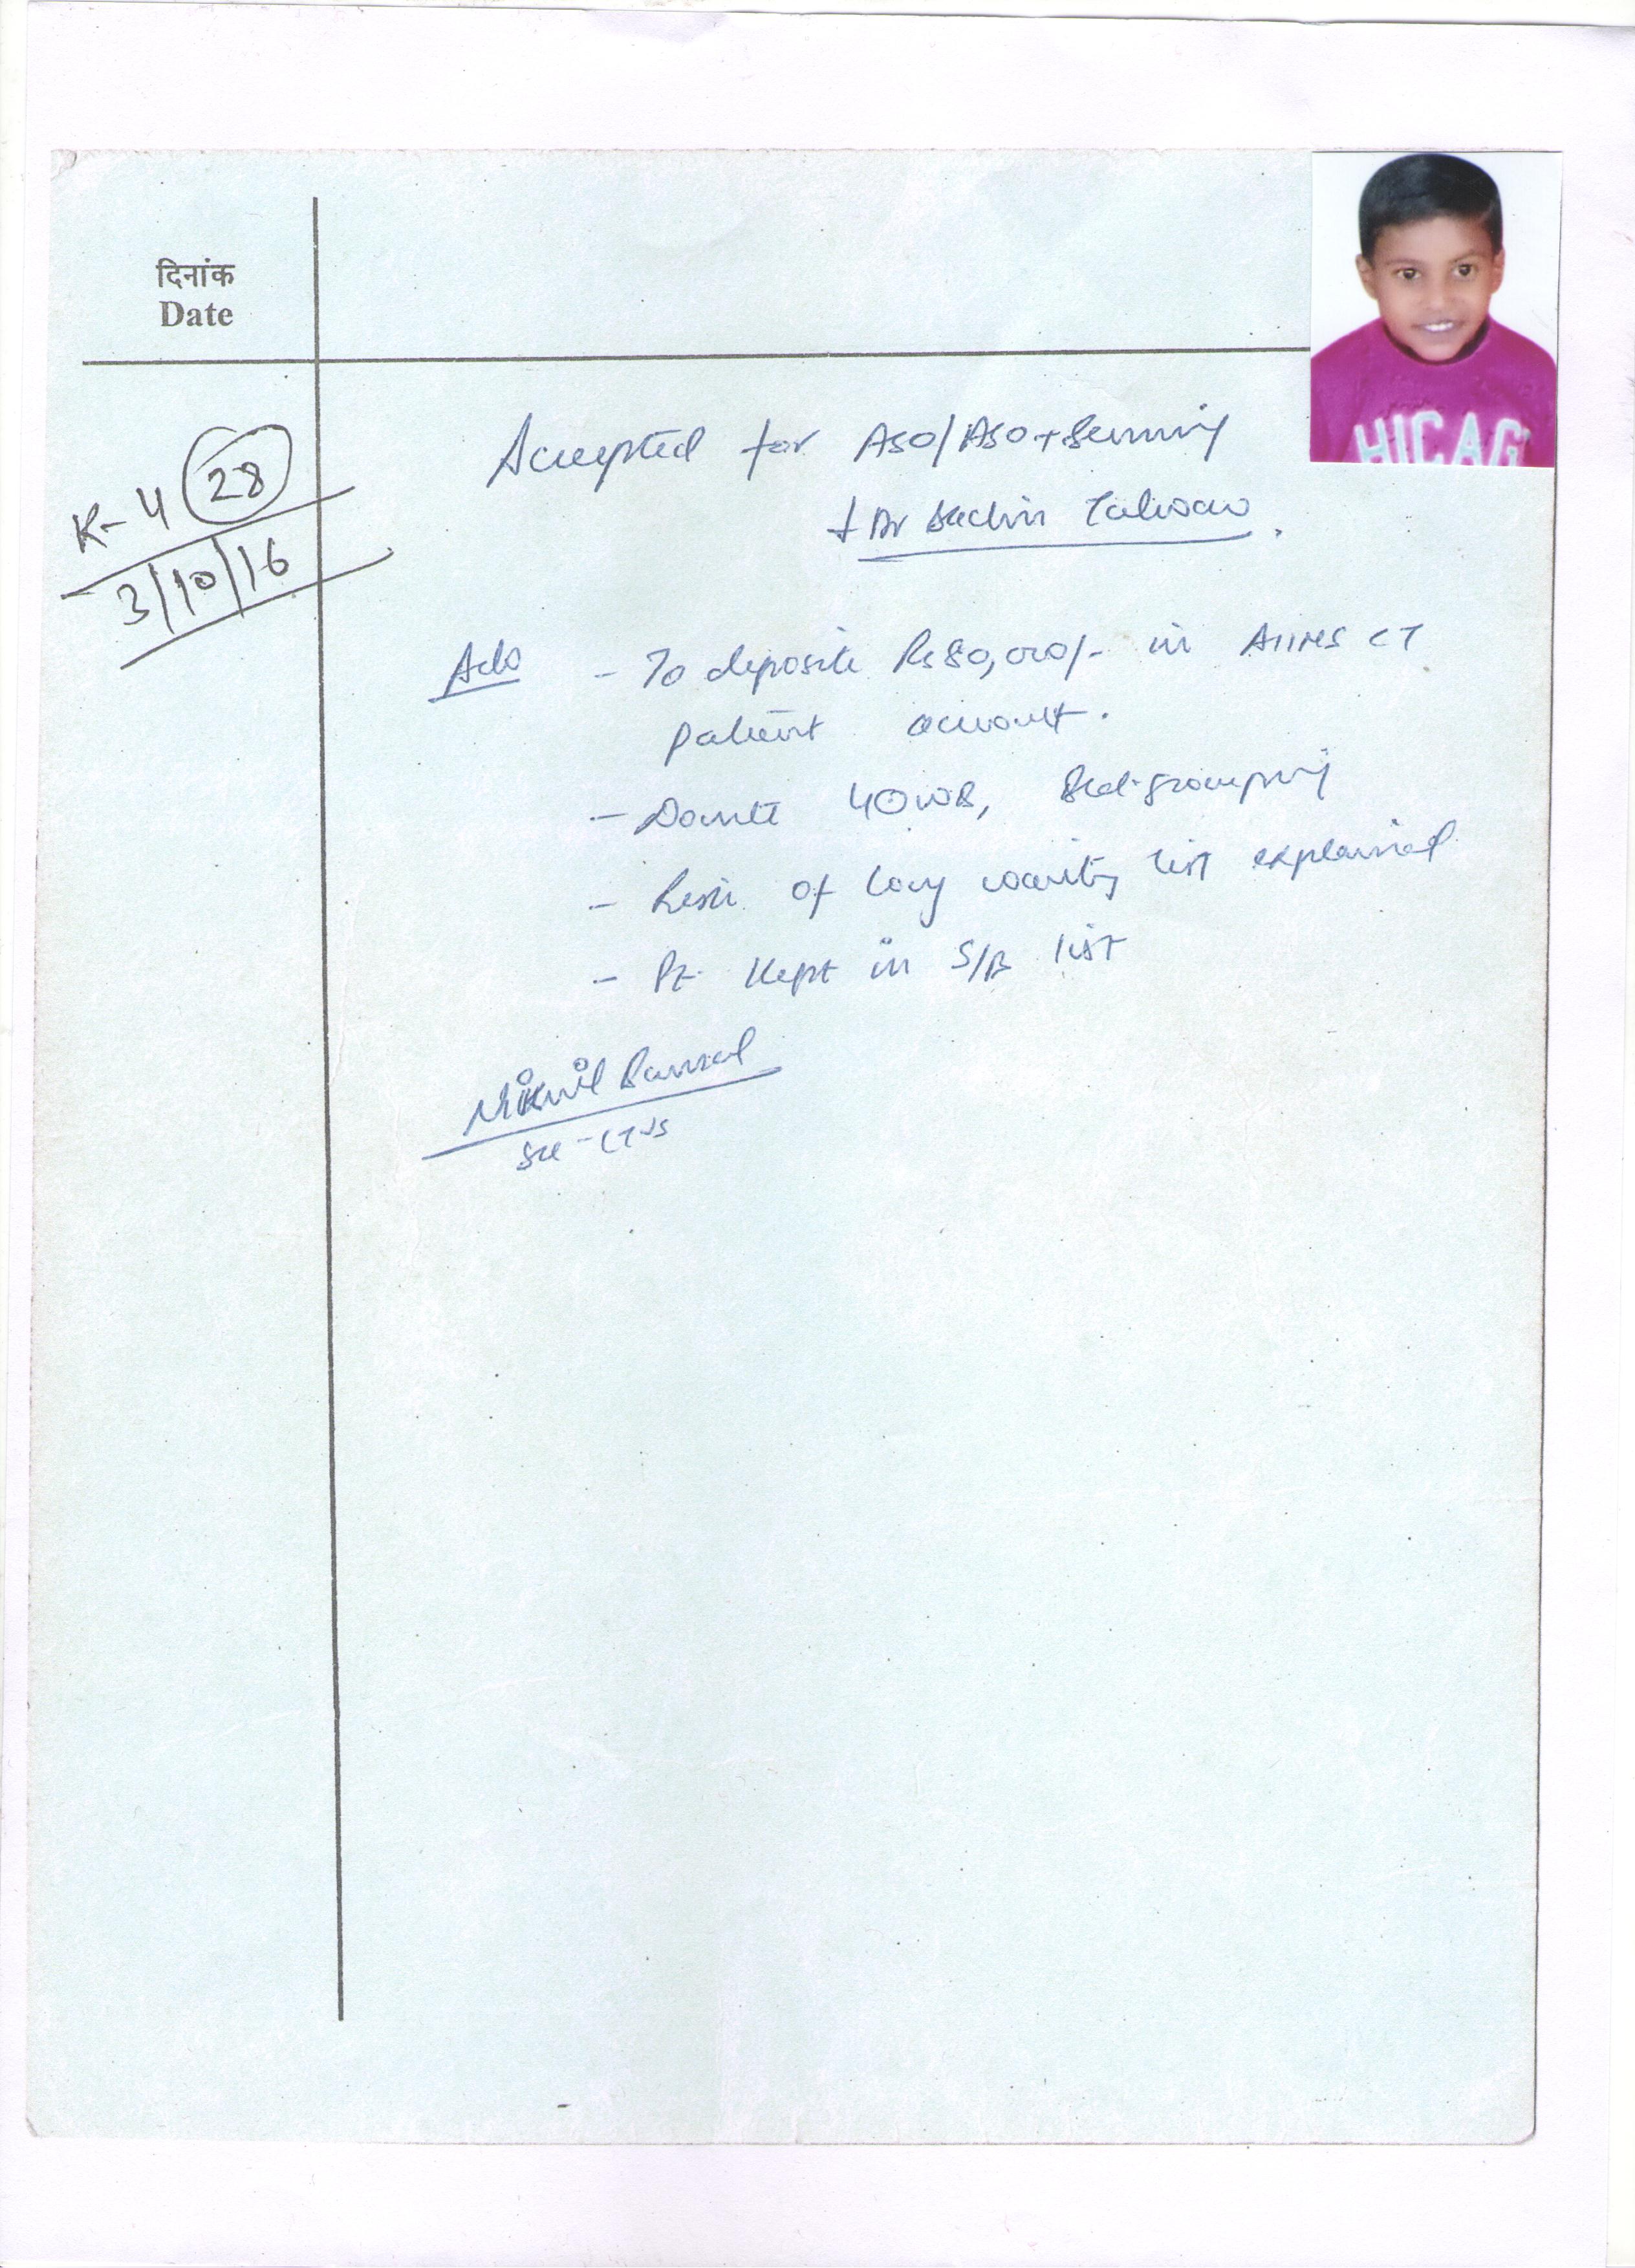 दिनांक
Date
HICAG
K-4 28
3/10/16
Accepted for ASO/ASO+Senning
+ Dr Sachin Talwar.
Adv - To deposite Rs 80,000/- in AIIMS CT
patient account.
- Donate 4 , Bld grouping
- Risk of long waiting list explained
- Pt. kept in S/B list
Nikhil Bansal
CTVS